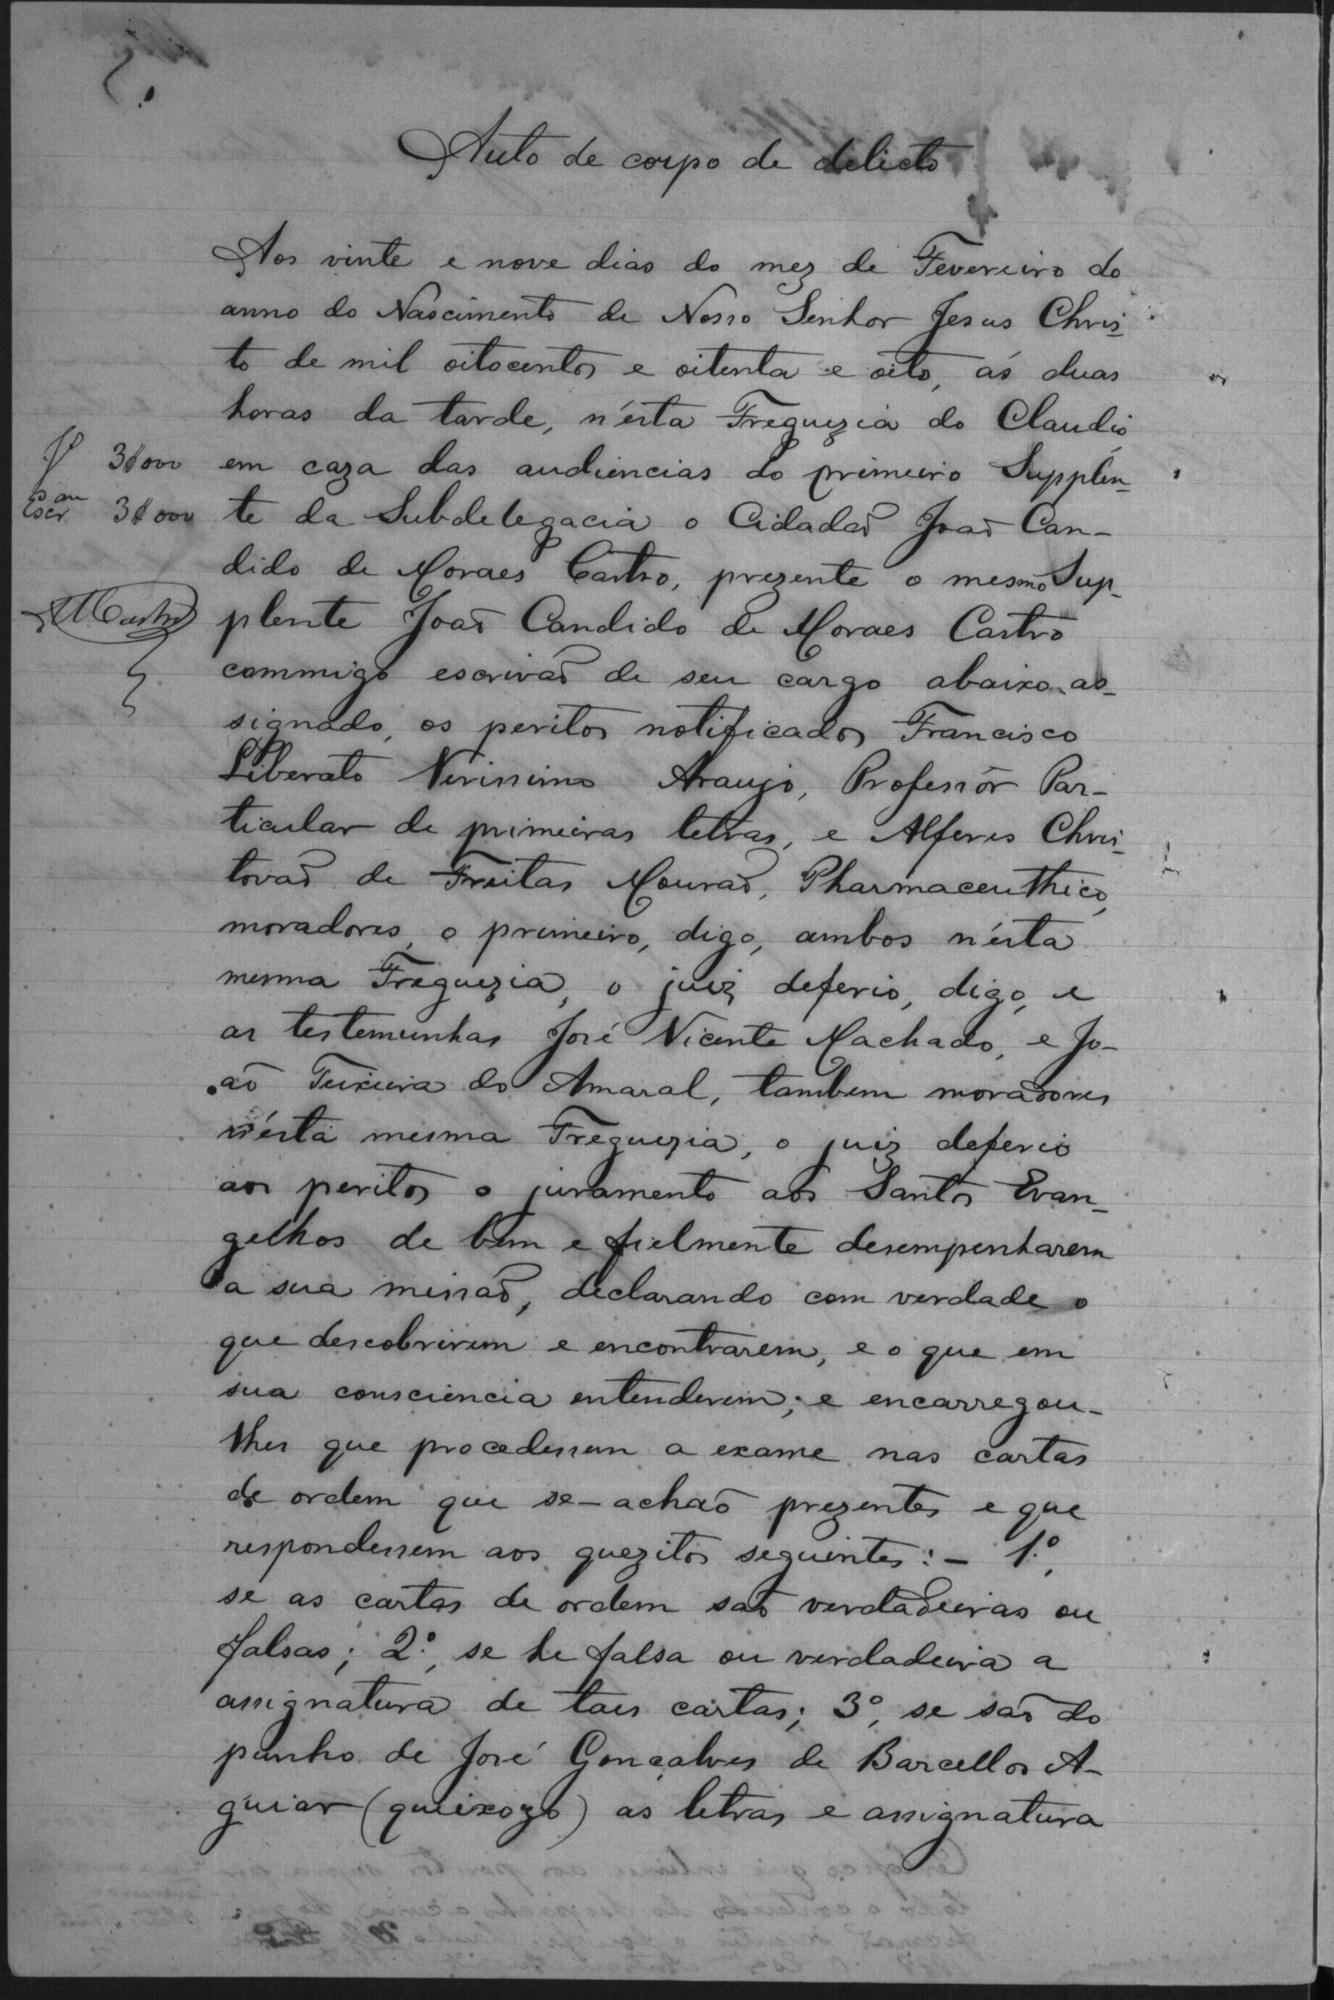 Auto de corpo de delicto
Aos vinte e nove dias do mez de Fevereiro do
anno do Nascimento de Nosso Senhor Jesus Chris-
to de mil oitocentos e oitenta e oito, ás duas
horas da tarde, n'ésta Freguezia do Claudio
em caza das audiencias do primeiro Supplen-
te da Subdelegacia o Cidadaõ Joaõ Can-
dido de Moraes Castro, prezente o mesmo Sup-
plente Joaõ Candido de Moraes Castro
commigo escrivaõ de seu cargo abaixo as-
signado, os peritos notificados Francisco
Liberato Verissimo Araujo, Professôr Par-
ticular de primeiras letras, e Alferes Chris-
tovaõ de Freitas Mouraõ, Pharmaceuthico,
moradores, o primeiro, digo, ambos n'ésta
mesma Freguezia, o juiz deferio, digo, e
as testemunhas José Vicente Machado, e Jo-
aõ Teixeira do Amaral, tambem moradores
n'ésta mesma Freguezia, o juiz deferio
aos peritos o juramento aos Santos Evan-
gelhos de bem e fielmente desempenharem
a sua missaõ, declarando com verdade o
que descobrirem e encontrarem, e o que em
sua consciencia entenderem; e encarregou-
lhes que procedessem a exame nas cartas
de ordem que se-achaõ prezentes e que
respondessem aos quezitos seguintes: - 1º,
se as cartas de ordem saõ verdadeiras ou
falsas; 2º, se he falsa ou verdadeira a
assignatura de taes cartas; 3º, se saõ do
punho de José Gonçalves de Barcellos A-
guiar (queixozo) as letras e assignatura
J 3$000
Escram 3$000
MCastro